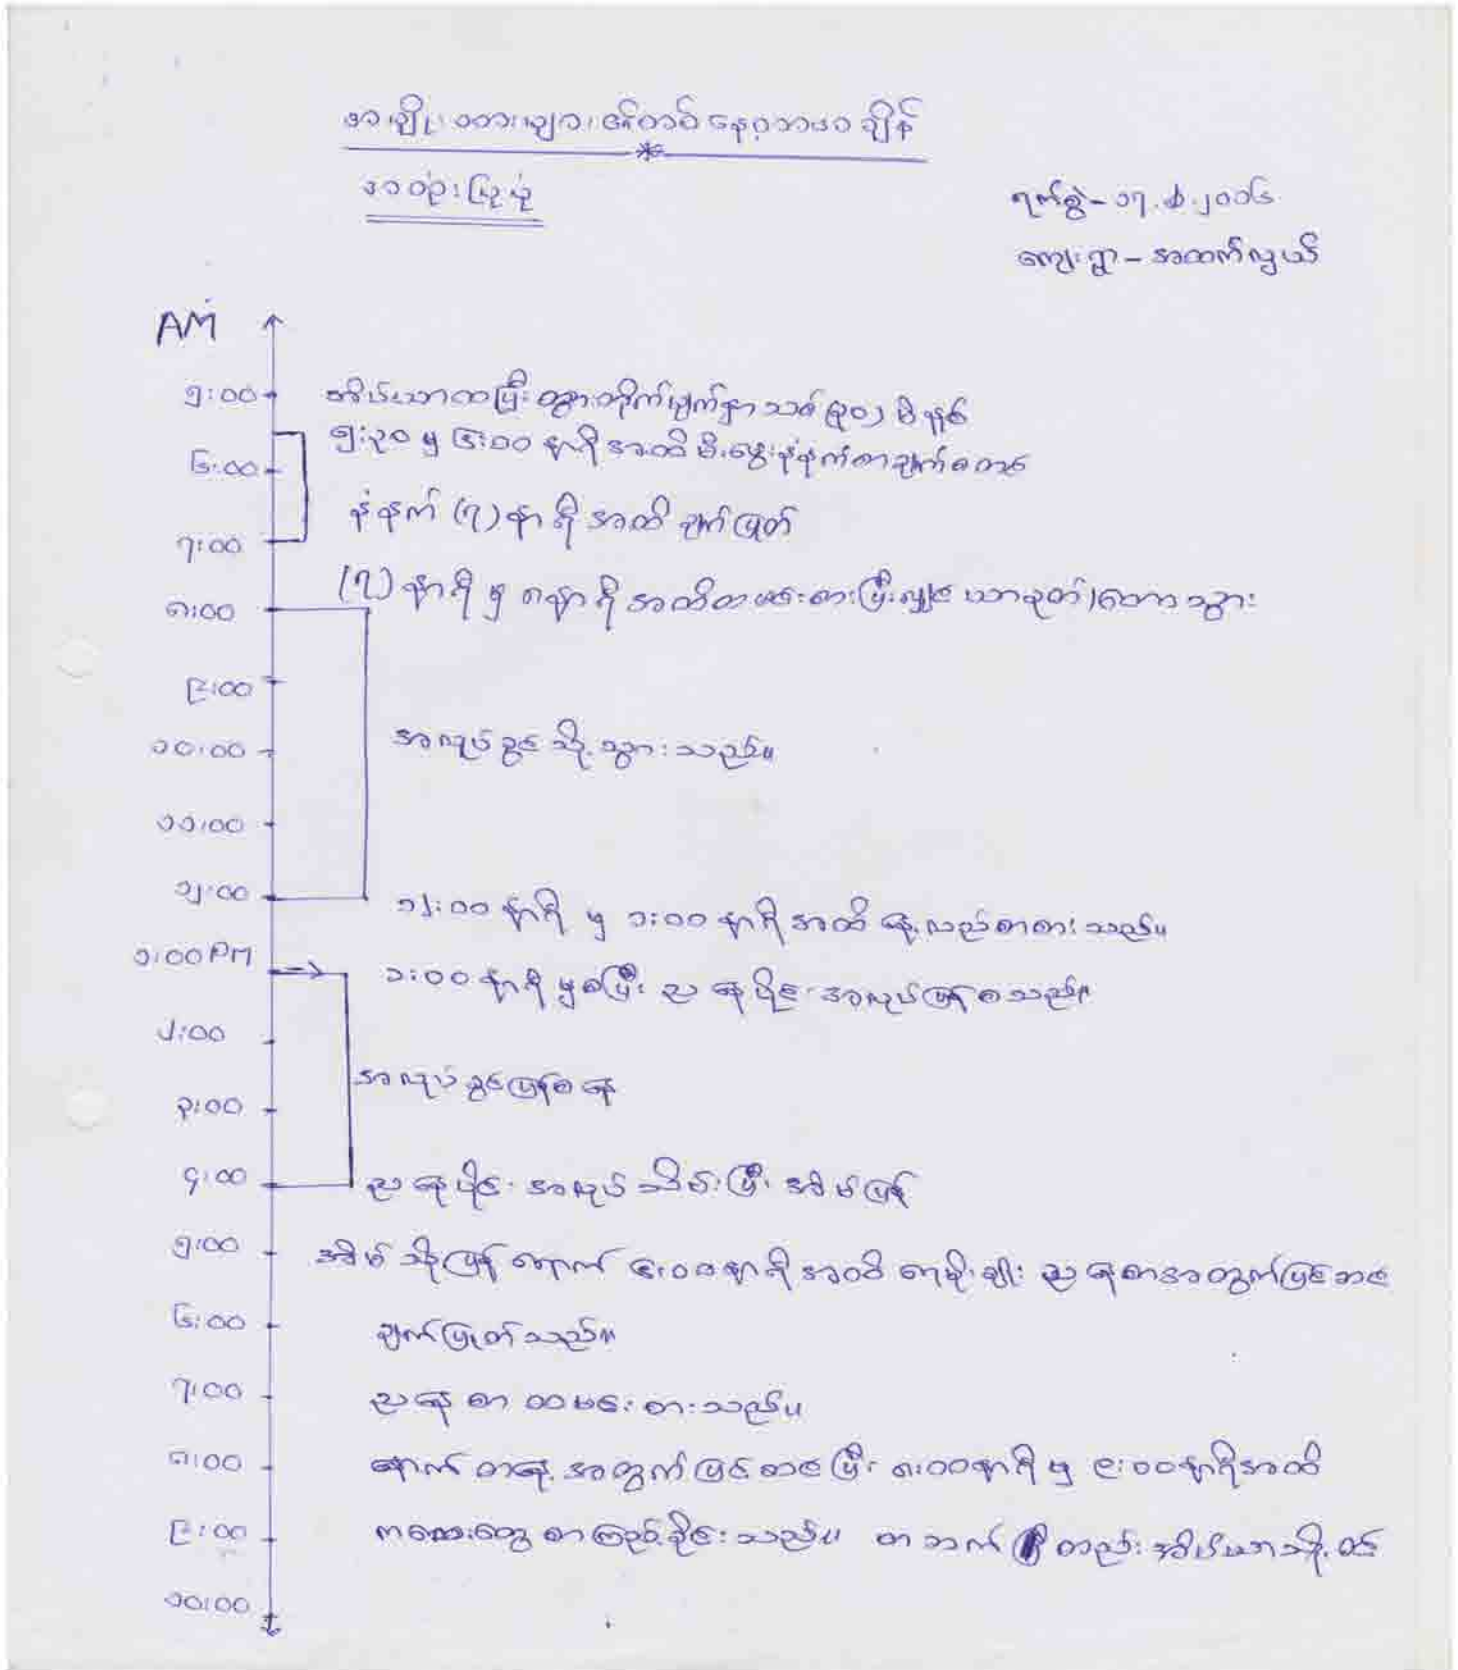 အမျိုးသားများ၏တစ်နေ့တာအချိန်
အသုံးပြုပုံ
ရက်စွဲ - ၁၇.၂၀၁၆
ကျေးရွာ - အထက်လွယ်
AM
၅:၀၀
အိပ်ယာထပြီး သွားတိုက်မျက်နှာသစ် (၃၀) မိနစ်
၅:၃၀ မှ ၆:၀၀ နာရီအထိ မီးမွှေးနံနက်စာချက်
၆:၀၀
နံနက် (၇) နာရီအထိ ချက်ပြုတ်
၇:၀၀
(၇) နာရီ မှ ၈နာရီ အထိထမင်းစားပြီးလျှင် ယာခုတ်/တောသွား
၈:၀၀
၉:၀၀
အလုပ်ခွင်သို့သွားသည်။
၁၀:၀၀
၁၁:၀၀
၁၂:၀၀
၁၂:၀၀ နာရီ မှ ၁:၀၀ နာရီအထိ နေ့လည်စာစားသည်။
၁:၀၀ PM
၁:၀၀ နာရီမှစပြီး ညနေပိုင်းအလုပ်ပြန်စသည်။
၂:၀၀
အလုပ်ခွင်ပြန်စနေ
၃:၀၀
၄:၀၀
ညနေပိုင်းအလုပ်သိမ်းပြီး အိမ်ပြန်
၅:၀၀
အိမ်သို့ပြန်ရောက် ၆:၀၀နာရီအထိ ရေမိုးချိုး ညနေစာအတွက်ပြင်ဆင်
၆:၀၀
ချက်ပြုတ်သည်။
၇:၀၀
ညနေစာ ထမင်းစားသည်။
၈:၀၀
နောက်တနေ့အတွက်ပြင်ဆင်ပြီး ၈:၀၀နာရီမှ ၉:၀၀နာရီအထိ
၉:၀၀
ကလေးတွေစာကြည့်ခိုင်းသည်။ တဘက်တည်းအိပ်ယာသို့ဝင်
၁၀:၀၀